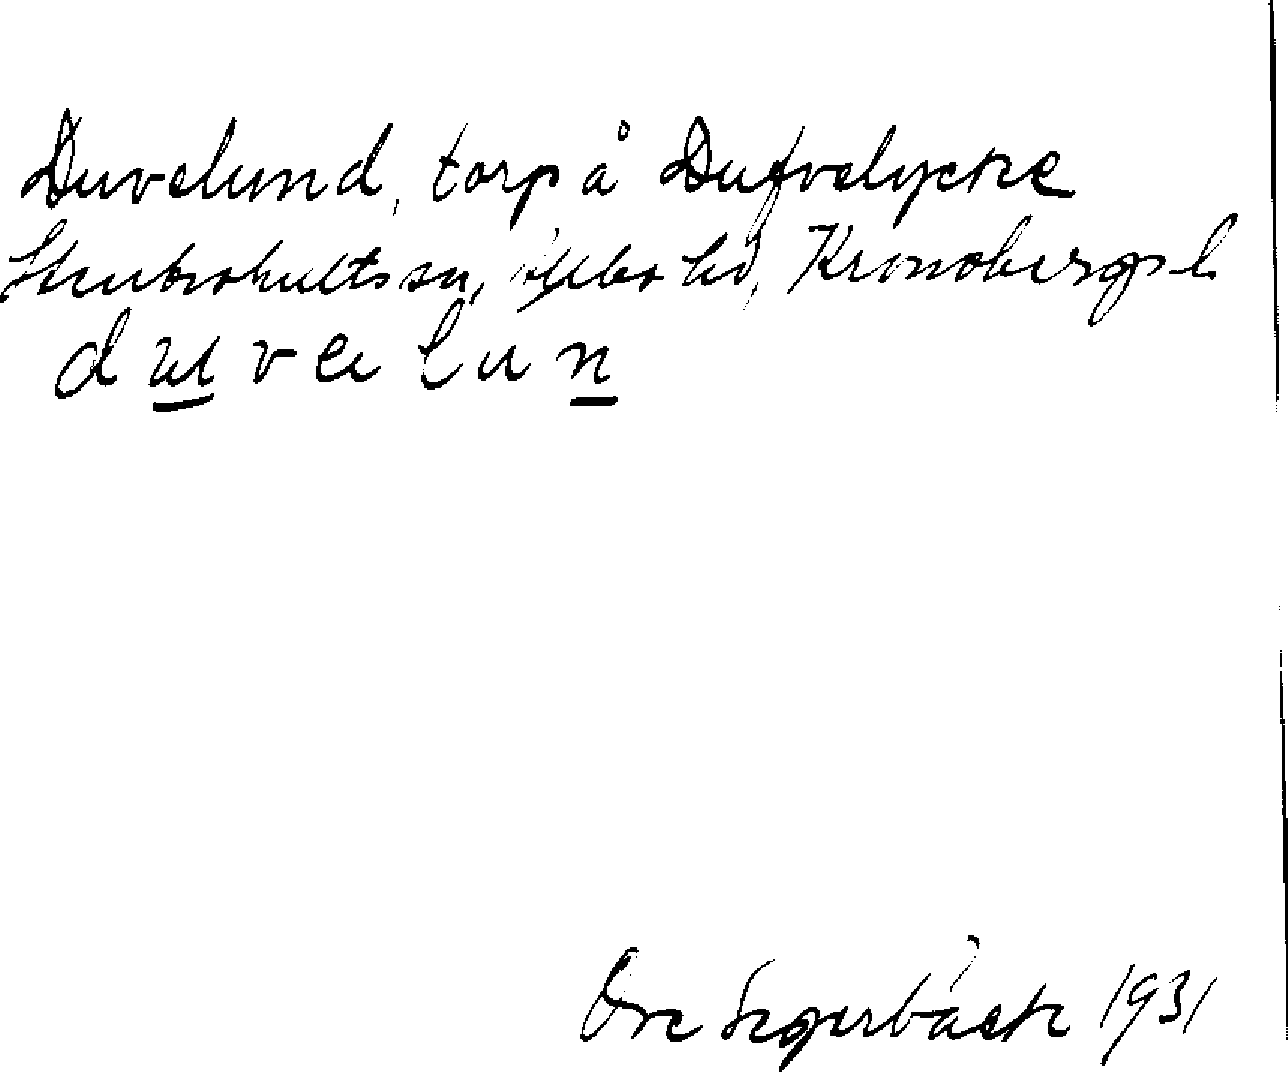 Duvelund, torp å Dufvelycke
Stenbrohults sn, Allbo hd, Kronobergs l
duvelun
Ove Segerbäck 1931